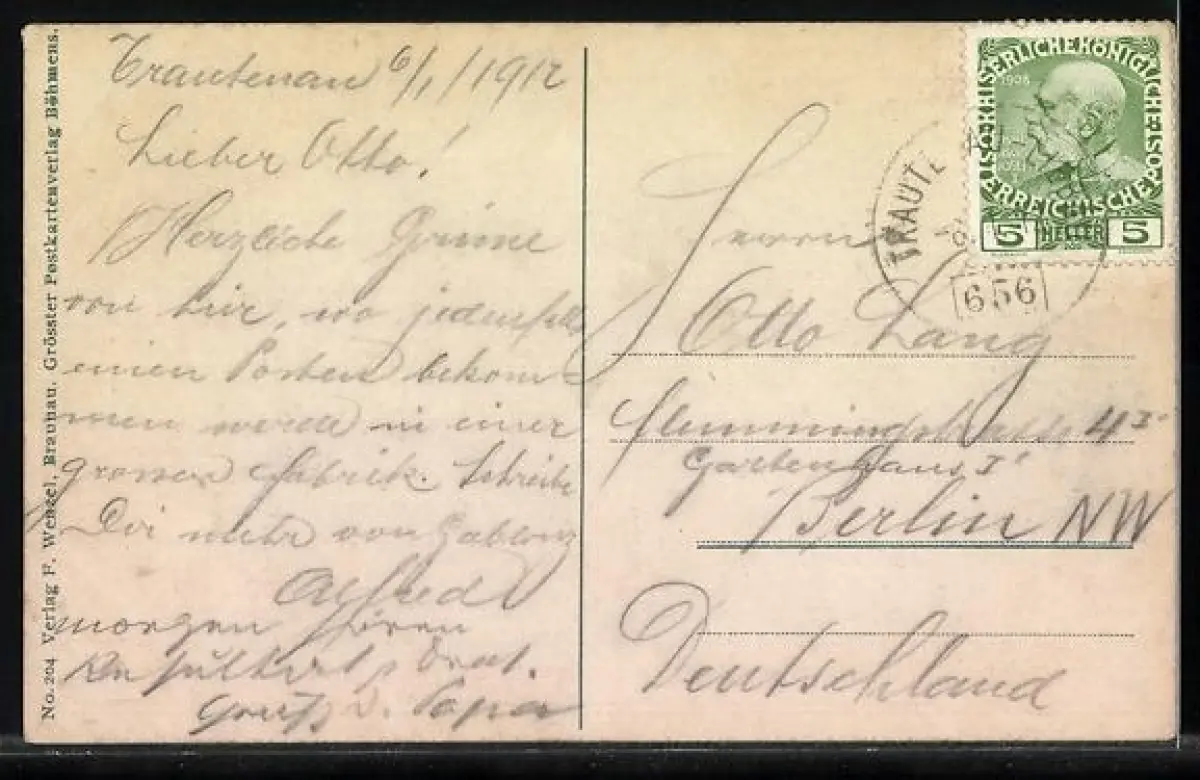 No. 204 Verlag F. Wenzel, Braunau. Grösster Postkartenverlag Böhmens.
Trautenau 6/1/1912
Lieber Otto!
Herzliche Grüsse
von hier, wo jedenfalls
einen Posten bekom
men werde in einer
grossen Fabrik. Schreibe
Dir mehr von Gablonz
Alfred
morgen
Gruß v. Papa
KAISERLICHE KÖNIGLICHE
ÖSTERREICHISCHE POST
1908
5 HELLER 5
TRAUTENAU
656
Herrn
Otto Lang
Flemmingstrasse 4 I
Gartenhaus I
Berlin NW
Deutschland